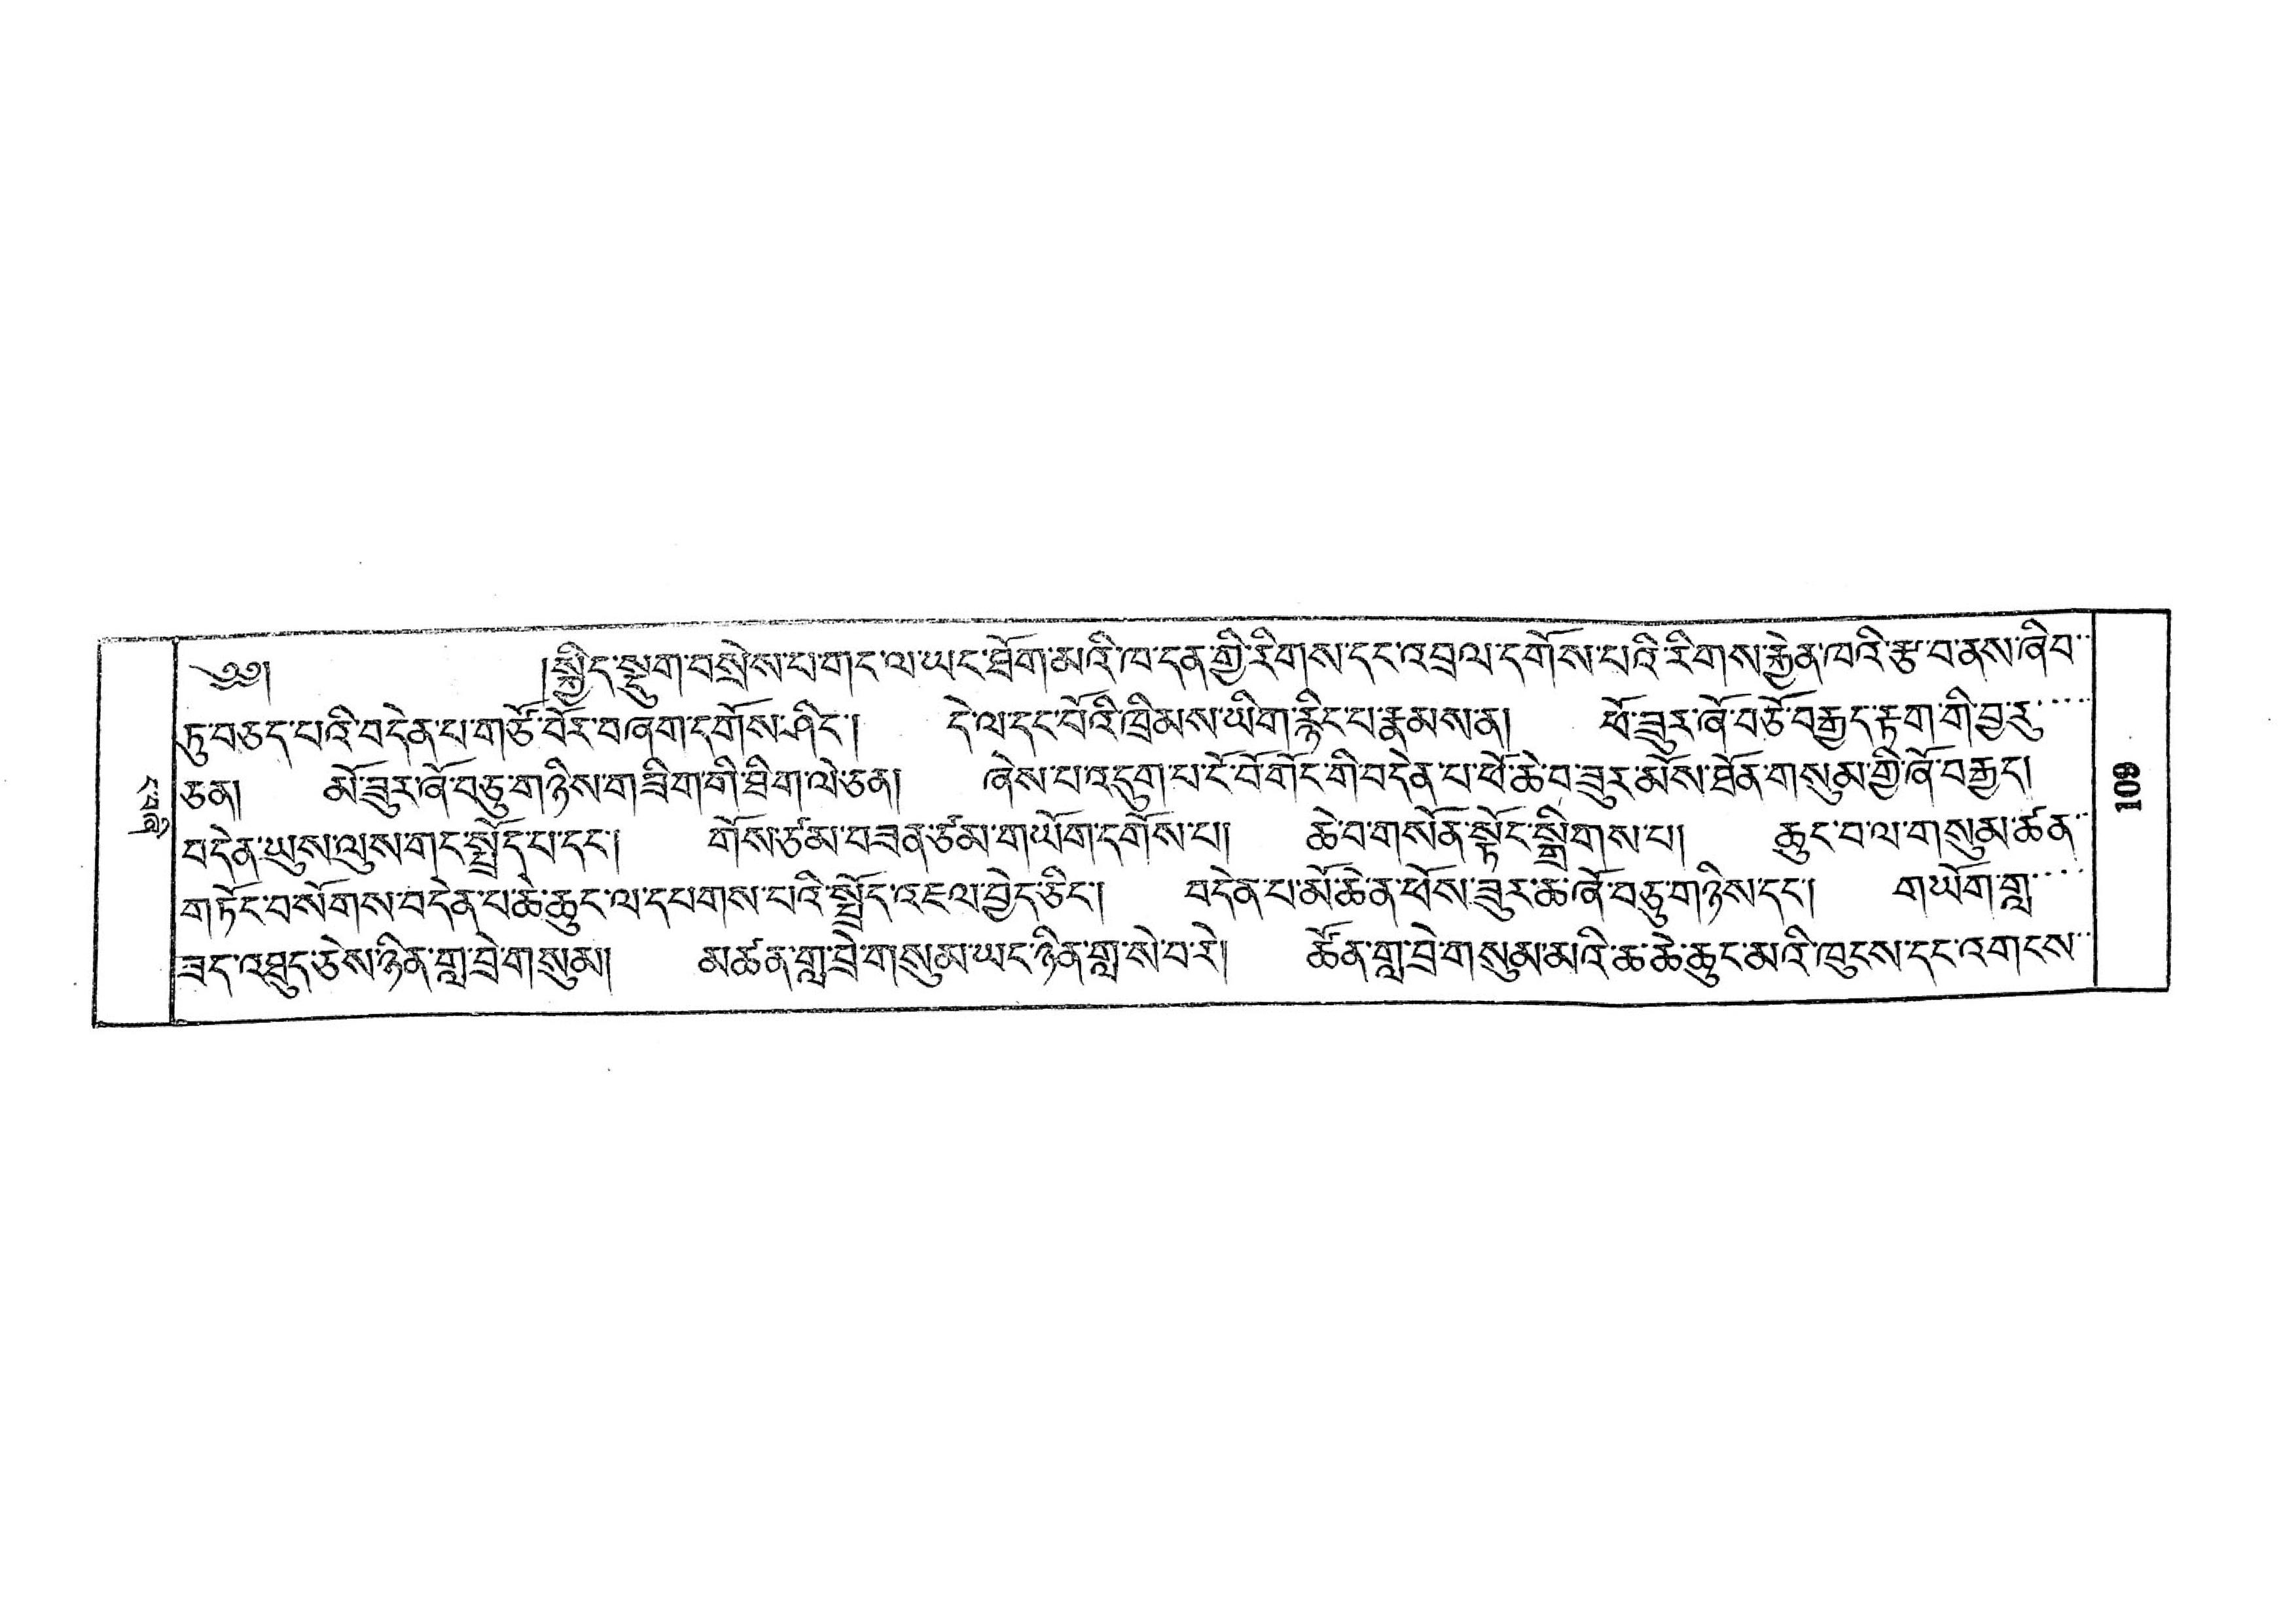 ༄༅། །སྐྱིད་སྡུག་བསྲེས་པ་གང་ལ་ཡང་ཐོག་མའི་ཁ་དན་གྱི་རིགས་དང་འབྲལ་དགོས་པའི་རིགས་རྐྱེན་ཁའི་རྩ་བ་ནས་ཞིབ་
ཏུ་བཅད་པའི་བདེན་པ་གཙོ་བོར་བཞག་དགོས་ཤིང་། དེ་ལ་དང་པོའི་ཁྲིམས་ཡིག་རྙིང་པ་རྣམས་ན། ཕོ་ཟུར་ཞོ་བཅོ་བརྒྱད་རྟག་གི་བྱ་རུ་
ཅན། མོ་ཟུར་ཞོ་བཅུ་གཉིས་གཟིག་གི་ཐིག་ལེ་ཅན། ཞེས་པ་འདུག་པ་ངོ་བོ་གོང་གི་བདེན་པ་ཕོ་ཆེ་བ་ཟུར་མོས་ཐོན་གསུམ་གྱི་ཞོ་བརྒྱད།
བདེན་ཡུས་ལུས་གང་སྤྲོད་པ་དང་། གོས་ཙམ་བཟན་ཙམ་གཡོག་དགོས་པ། ཆེ་བ་གསོན་སྟོང་སྒྲིགས་པ། ཆུང་བ་ལ་གསུམ་ཚན་
གཏོང་བ་སོགས་བདེན་པ་ཆེ་ཆུང་ལ་དཔགས་པའི་སྤྲོད་འཇལ་བྱེད་ཅིང་། བདེན་པ་མོ་ཆེན་ཕོས་ཟུར་ཆ་ཞོ་བཅུ་གཉིས་དང་། གཡོག་གླ་
ཟད་འཐུད་ཅེས་ཉིན་གླ་བྲེ་གསུམ། མཚན་གླ་བྲེ་གསུམ་ཡང་ཉིན་གླ་སེ་བ་རེ། ཚོན་གླ་བྲེ་གསུམ་མའི་ཆ་ཆེ་ཆུང་མའི་ཁུངས་དང་འགངས་
109